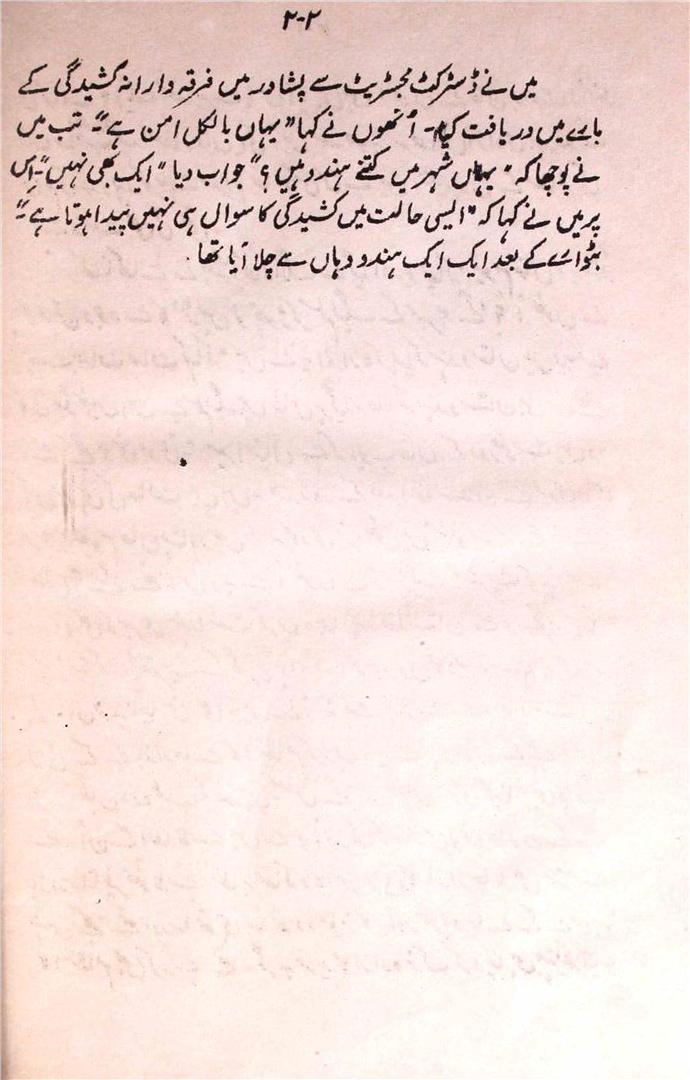 ۲۰۲
میں نے ڈسٹرکٹ مجسٹریٹ سے پشاور میں فرقہ دارانہ کشیدگی کے
بارے میں دریافت کیا۔ اُنھوں نے کہا "یہاں بالکل امن ہے"۔ تب میں
نے پوچھا کہ "یہاں شہر میں کتنے ہندو ہیں؟" جواب دیا "ایک بھی نہیں"۔ اِس
پر میں نے کہا کہ "ایسی حالت میں کشیدگی کا سوال ہی نہیں پیدا ہوتا ہے"۔
بٹوارے کے بعد ایک ایک ہندو وہاں سے چلا آیا تھا۔